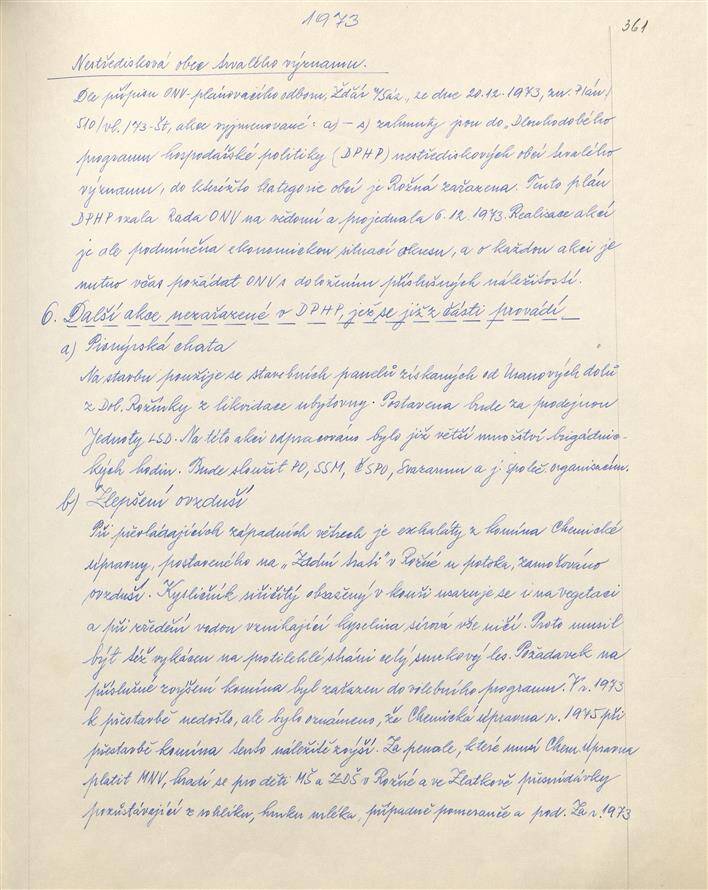 1973
361
Nestředisková obec trvalého významu.
Dle přípisu ONV-plánovacího odboru, Žďár n/Sáz., ze dne 20.12.1973, zn. Plán/
510/vl./73-Št, akce vyjmenované: a) — s) zahrnuty jsou do „Dlouhodobého
programu hospodářské politiky (DPHP) nestřediskových obcí trvalého
významu, do kteréžto kategorie obcí je Rožná zařazena. Tento plán
DPHP vzala Rada ONV na vědomí a projednala 6.12.1973. Realisace akcí
je ale podmíněna ekonomickou situací okresu, a o každou akci je
nutno včas požádat ONV s doložením příslušných náležitostí.
6. Další akce nezařazené v DPHP, jež se již z části provádí
a) Pionýrská chata
Na stavbu použije se stavebních panelů získaných od Uranových dolů
z Dol. Rožínky z likvidace ubytovny. Postavena bude za prodejnou
Jednoty LSD. Na této akci odpracováno bylo již větší množství brigádnic-
kých hodin. Bude sloužit PO, SSM, ČSPO, Svazarmu a j. společ. organisacím.
b) Zlepšení ovzduší
Při převládajících západních větrech je exhaláty z komína Chemické
úpravny, postaveného na „Zadní trati" v Rožné u potoka, zamořováno
ovzduší. Kysličník siřičitý obsažený v kouři usazuje se i na vegetaci
a při zředění vodou vznikající kyselina sírová vše ničí. Proto musil
být též vykácen na protilehlé stráni celý smrkový les. Požadavek na
příslušné zvýšení komína byl zařazen do volebního programu. V r. 1973
k přestavbě nedošlo, ale bylo oznámeno, že Chemická úpravna r. 1975 při
přestavbě komína tento náležitě zvýší. Za penále, které musí Chem. úpravna
platit MNV, hradí se pro děti MŠ a ZDŠ v Rožné a ve Zlatkově přesnídávky
pozůstávající z rohlíku, hrnku mléka, případně pomeranče a pod. Za r. 1973